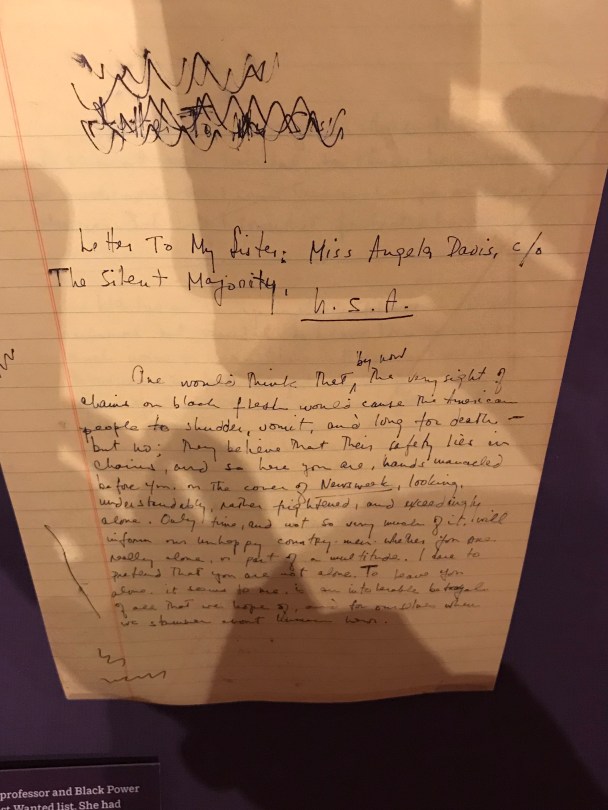 Letter To My Sister: Miss Angela Davis, c/o
The Silent Majority,
U. S. A.
by now
One would think that, the very sight of
chains on black flesh would cause the American
people to shudder, vomit, and long for death —
but no; they believe that their safety lies in
chains, and so here you are, hands manacled
before you, on the cover of Newsweek, looking,
understandably, rather frightened, and exceedingly
alone. Only, time, and not so very much of it, will
inform our unhappy country-men whether you are
really alone, or part of a multitude. I have to
pretend that you are not alone. To leave you
alone, it seems to me, is an intolerable betrayal
of all that we hope of, and for ourselves when
we stammer about human
professor and Black Power
st Wanted list. She had